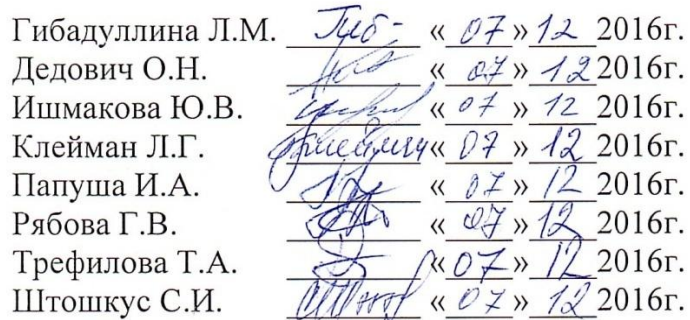 Гибадуллина Л.М. Гиб- « 07 » 12 2016г.
Дедович О.Н. « 07 » 12 2016г.
Ишмакова Ю.В. « 07 » 12 2016г.
Клейман Л.Г. « 07 » 12 2016г.
Папуша И.А. « 07 » 12 2016г.
Рябова Г.В. « 07 » 12 2016г.
Трефилова Т.А. « 07 » 12 2016г.
Штошкус С.И. « 07 » 12 2016г.